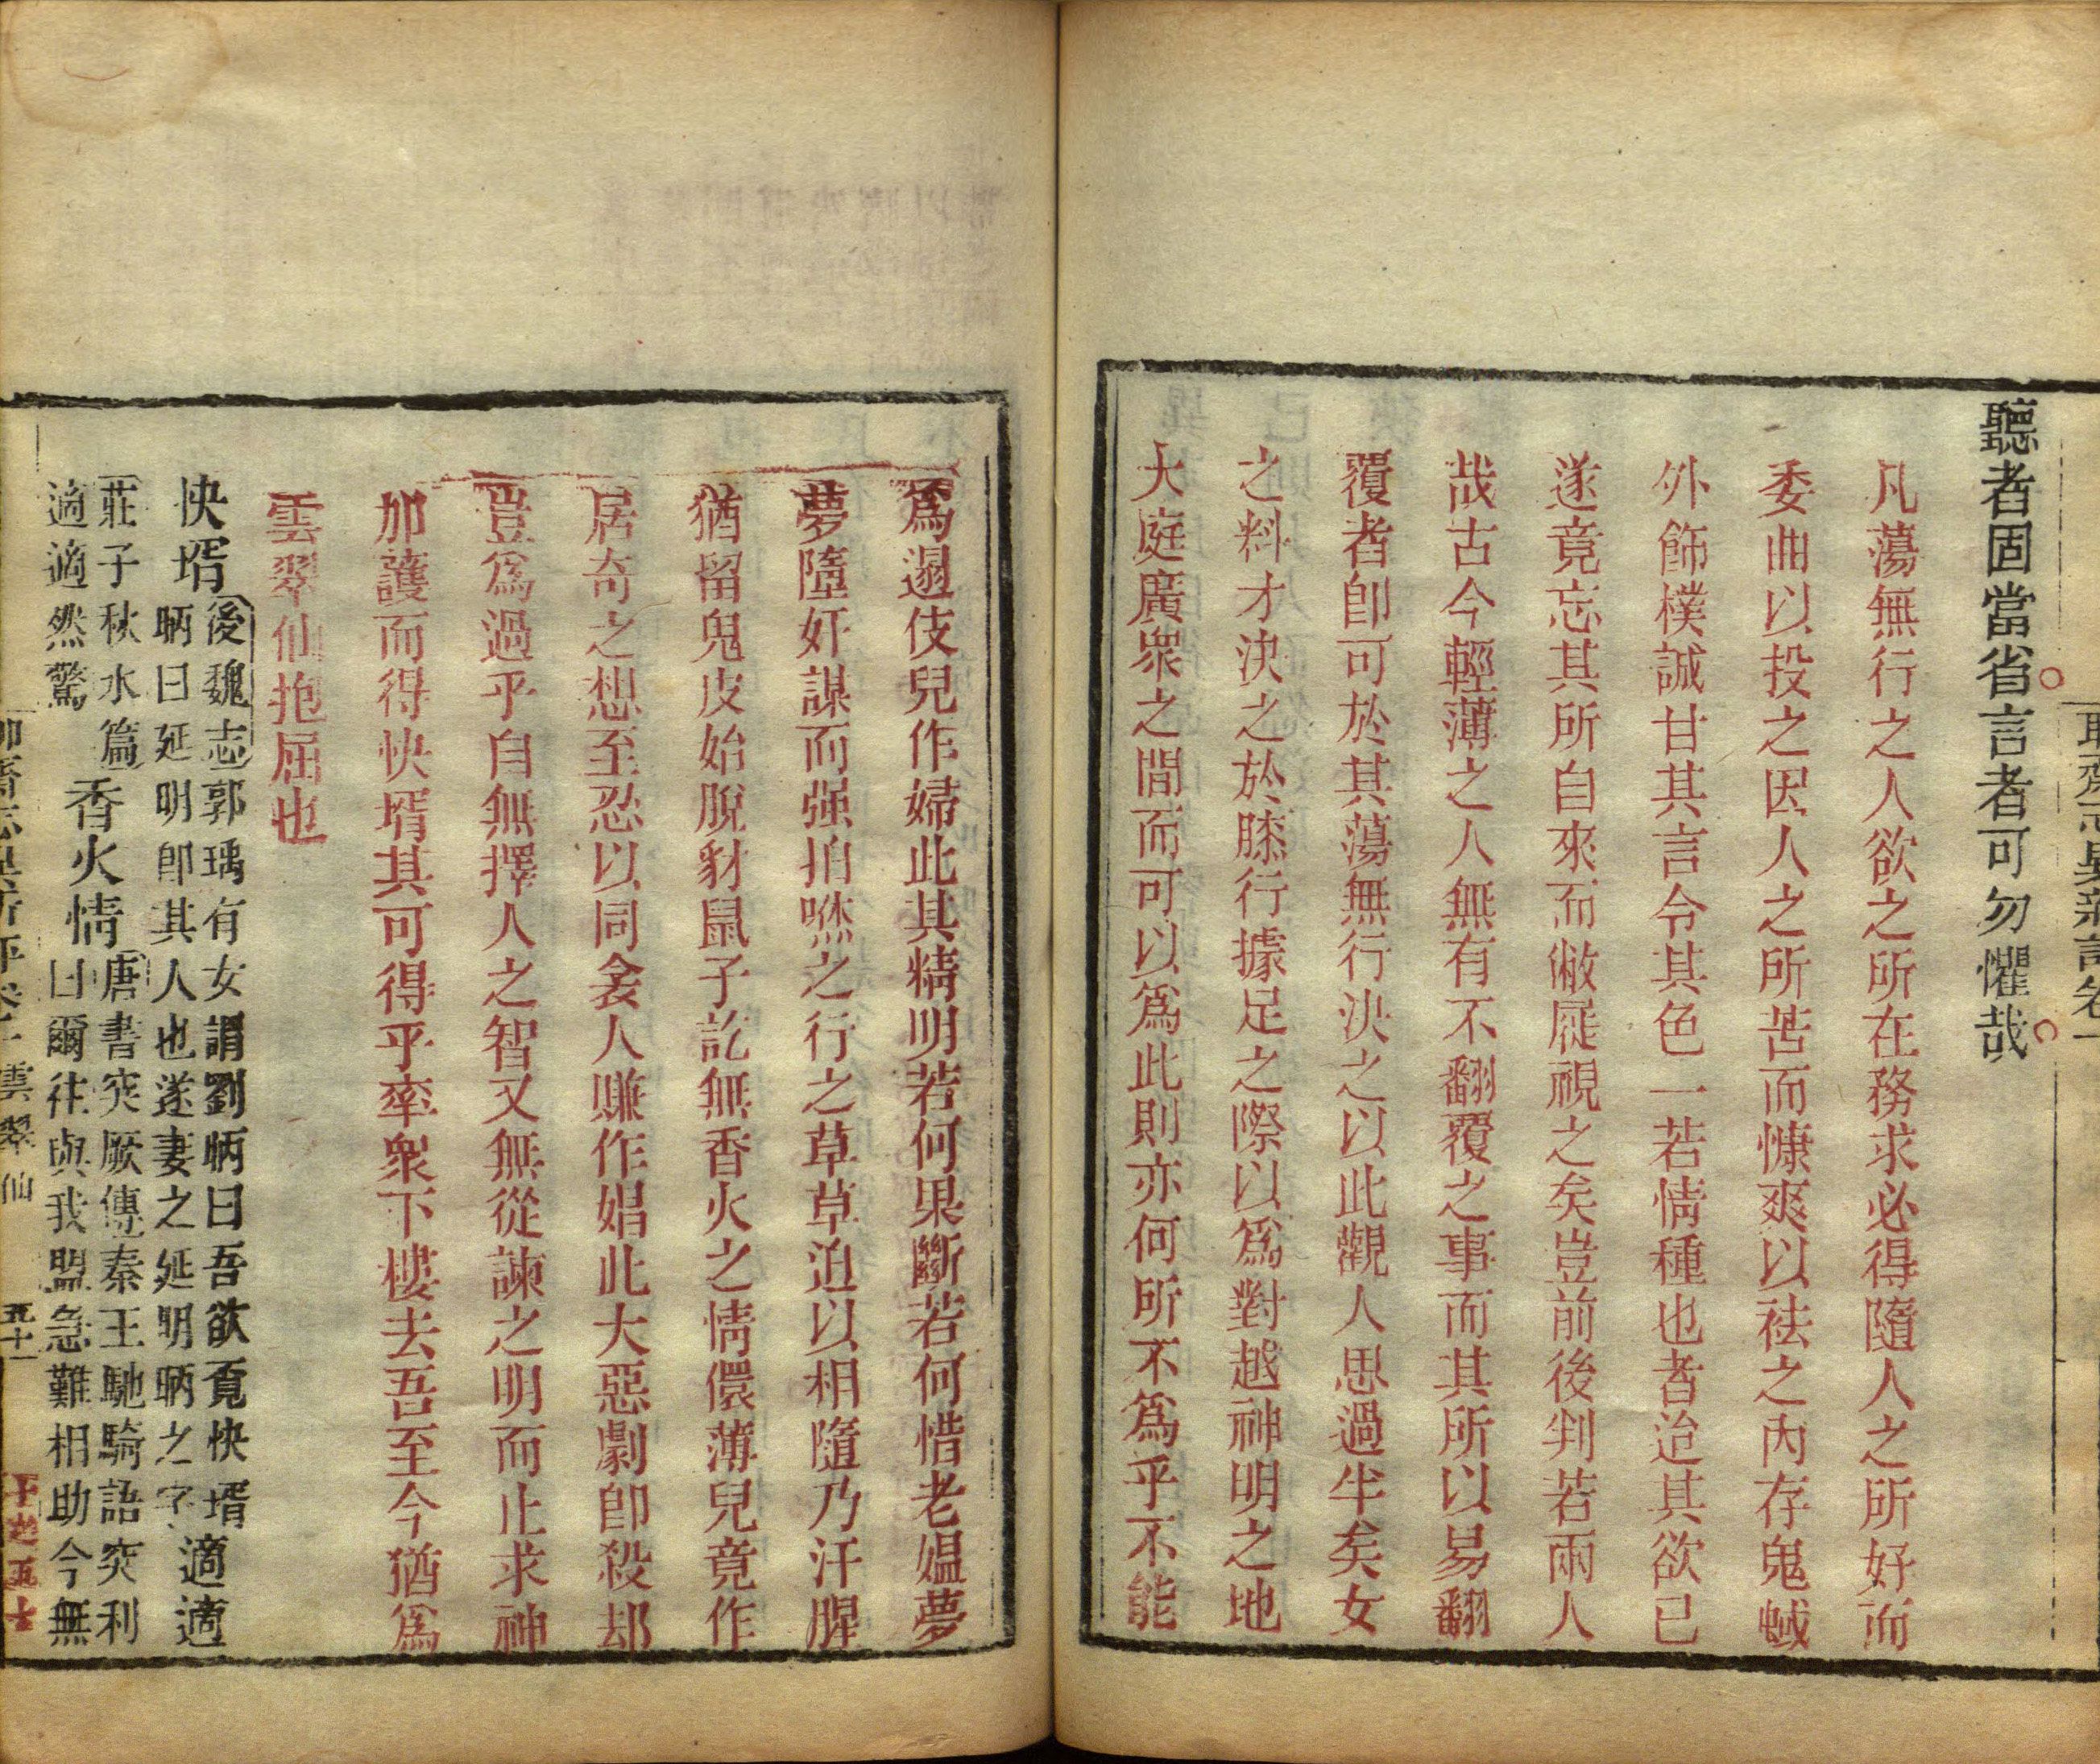 聽者固當省言者可勿懼哉
凡蕩無行之人欲之所在務求必得隨人之所好而
委曲以投之因人之所苦而慷爽以祛之內存鬼蜮
外飾樸誠甘其言令其色一若情種也者迨其欲已
遂竟忘其所自來而敝屣視之矣豈前後判若兩人
哉古今輕薄之人無有不翻覆之事而其所以易翻
覆者卽可於其蕩無行決之以此觀人思過半矣女
之料才決之於膝行據足之際以爲對越神明之地
大庭廣衆之間而可以爲此則亦何所不爲乎不能
爲遢伎兒作婦此其精明若何果斷若何惜老媼夢
夢墮奸謀而强拍咻之行之草草迫以相隨乃汗腥
猶留鬼皮始脫豺鼠子訖無香火之情儇薄兒竟作
居奇之想至忍以同衾人賺作娼此大惡劇卽殺却
豈爲過乎自無擇人之智又無從諫之明而止求神
加護而得快壻其可得乎率衆下樓去吾至今猶爲
雲翠仙抱屈也
快壻 後魏志郭瑀有女謂劉昞曰吾欲覓快壻
昞曰延明卽其人也遂妻之延明昞之字 適適
莊子秋水篇
適適然驚 香火情 唐書突厥傳秦王馳騎語突利
曰爾往與我盟急難相助今無
雲翠仙
五十一